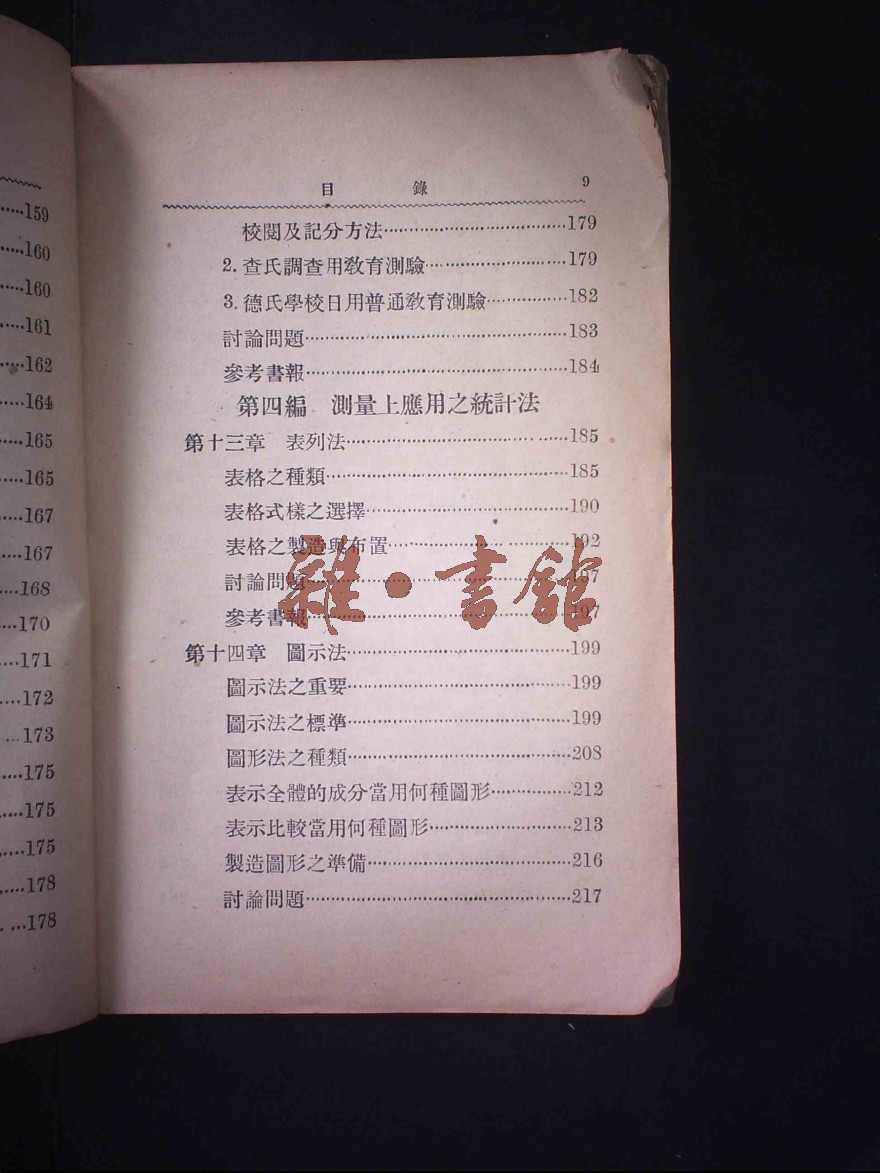 159
160
160
161
162
164
165
165
167
167
168
170
171
172
173
175
175
175
178
178
目錄 9
校閱及記分方法 179
2. 查氏調查用教育測驗 179
3. 德氏學校日用普通教育測驗 182
討論問題 183
參考書報 184
第四編 測量上應用之統計法
第十三章 表列法 185
表格之種類 185
表格式樣之選擇 190
表格之製造與布置 192
討論問題 197
參考書報 197
第十四章 圖示法 199
圖示法之重要 199
圖示法之標準 199
圖形法之種類 208
表示全體的成分當用何種圖形 212
表示比較當用何種圖形 213
製造圖形之準備 216
討論問題 217
雜·書館